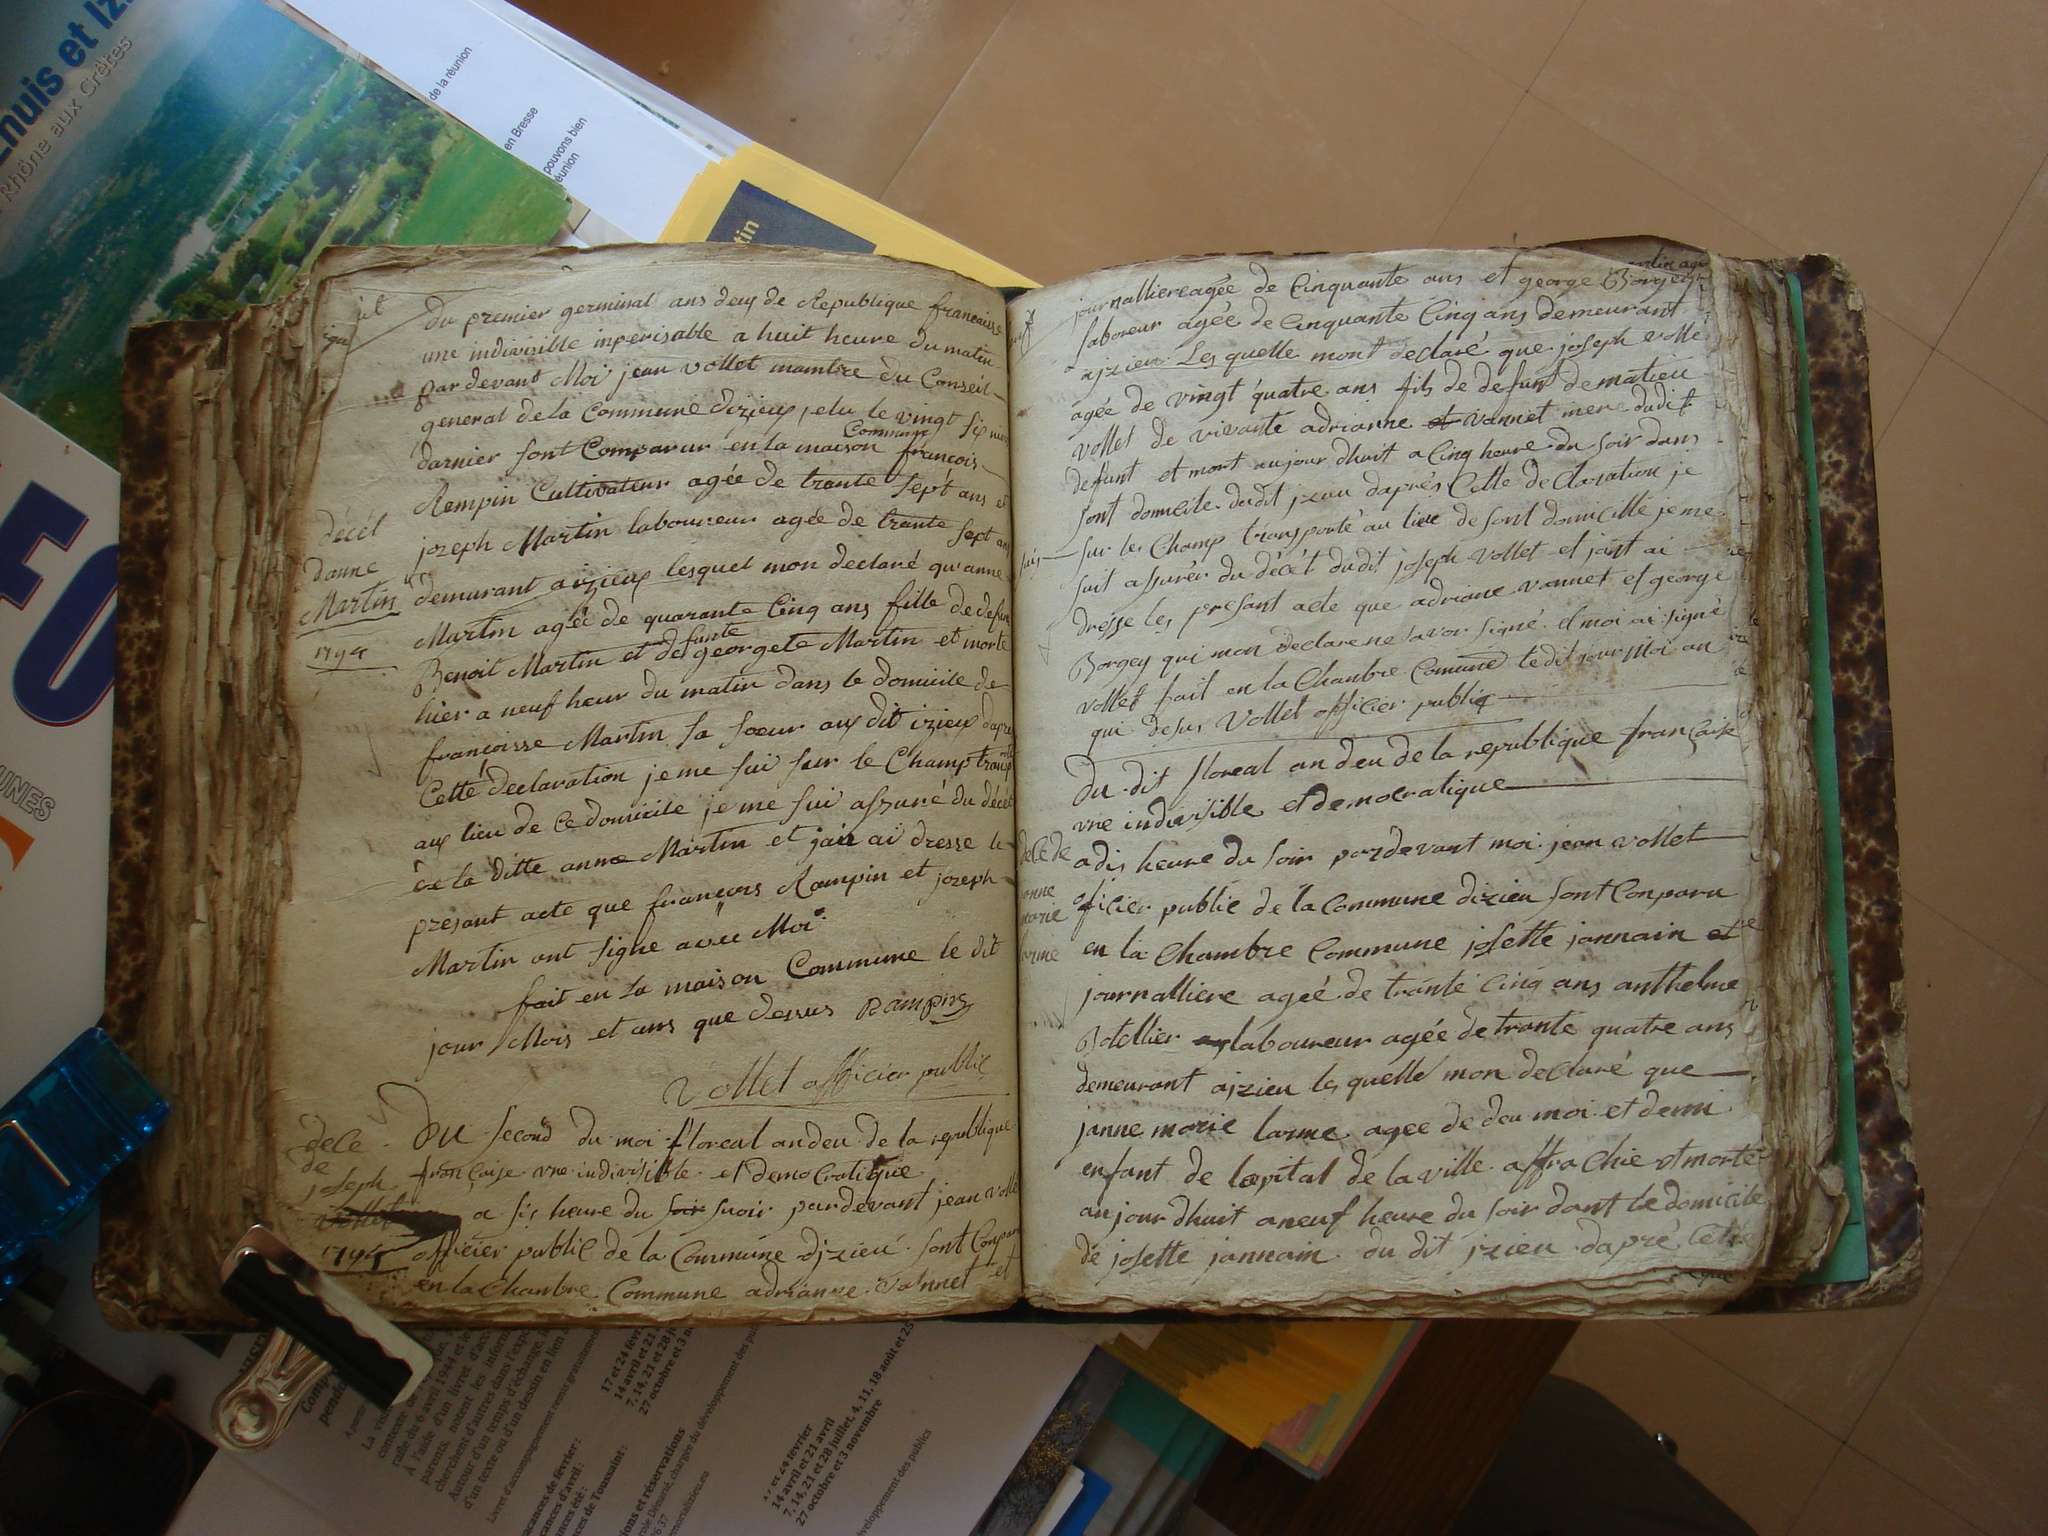 nuis et Iz
Rhône aux Crêtes
de la réunion
en Bresse
pouvons bien
éunion
tin
UNES
du premier germinal ans deux de Republique francaisse
une indivisible imperisable a huit heure du matin
par devant Moi jean vollet mambre du Conseil
general de la Commune dizieux, elu le vingt six
darnier sont Comparur en la maison Commune francois
Rempin Cultivateur agée de trante sept ans et
décél
joseph Martin laboureur agée de trante sept ans
danne
demurant aizieux lesquel mon declaré qu'anne
Martin
Martin agée de quarante Cinq ans fille de defun
1794
Benoit Martin et defunte georgete Martin et morte
hier a neuf heur du matin dans le domicile de
françoisse Martin sa soeur aux dit izieux dapre
Cette declaration je me sui sur le Champ
aux lieu de ce domicile je me sui assuré du décét
de la ditte anne Martin et jai ai dresse le
presant acte que francois Rampin et joseph
Martin ont signe avec Moi
fait en la maison Commune le dit
jour Mois et ans que dessus Rampin
Vollet officier public
dece
Du second du moi floreal an deu de la republique
de
joseph
françaisse vne indivisible et democratique
vollet
a sis heure du soir suoir pardevant jean volle
1794
officier public de la Commune dizieu sont Conpar
en la Chanbre Commune adrianne vannet et
journalliere agée de Cinquante ans et george Borgey
laboreur agée de Cinquante Cinq ans demeurant
a izieu Les quelle mont declaré que joseph volle
agée de vingt quatre ans fils de defunt de matieu
vollet de vivante adrianne et vannet mere dudit
defunt et mort aujourdhuit a Cinq heure du soir dans
sont domicile dudit izieu daprés Cette declaration je
sur les Champ transporté au lieu de sont domicillé je me
suit assurér du décét dudit joseph vollet et jant ai
drésse les presant acte que adriane vannet et george
Borgey qui mon declare ne savor signé et moi ai signé
vollet fait en la Chanbre Comune le dit jour Moi an
qui desus Vollet officier public
Du dit floreal an deu de la republique françaisse
vne indivisible et democratique
dece de
a dis heure du soir pardevant moi jean vollet
anne
officier public de la Commune dizieu sont Conparu
marie
larme
en la Chambre Commune josette jannain et
journalliere ageé de trante Cinq ans anthelme
Botellier laboureur agée de trante quatre ans
demeurant aizieu les quelle mon declaré que
janne marie larme agee de deu moi et demi
enfant de lopital de la ville affrachie et morte
aujourdhuit a neuf heure du soir dant le domicile
de josette jannain du dit izieu daprés Cette
17 et 24 févr
14 avril et 21
7, 14, 21 et 28 j
27 octobre et 3 n
acances de février :
cances d'avril :
ces de Toussaint :
ions et réservations
17 et 24 février
14 avril et 21 avril
7, 14, 21 et 28 juillet, 4, 11, 18 août et 25
27 octobre et 3 novembre
développement des publics